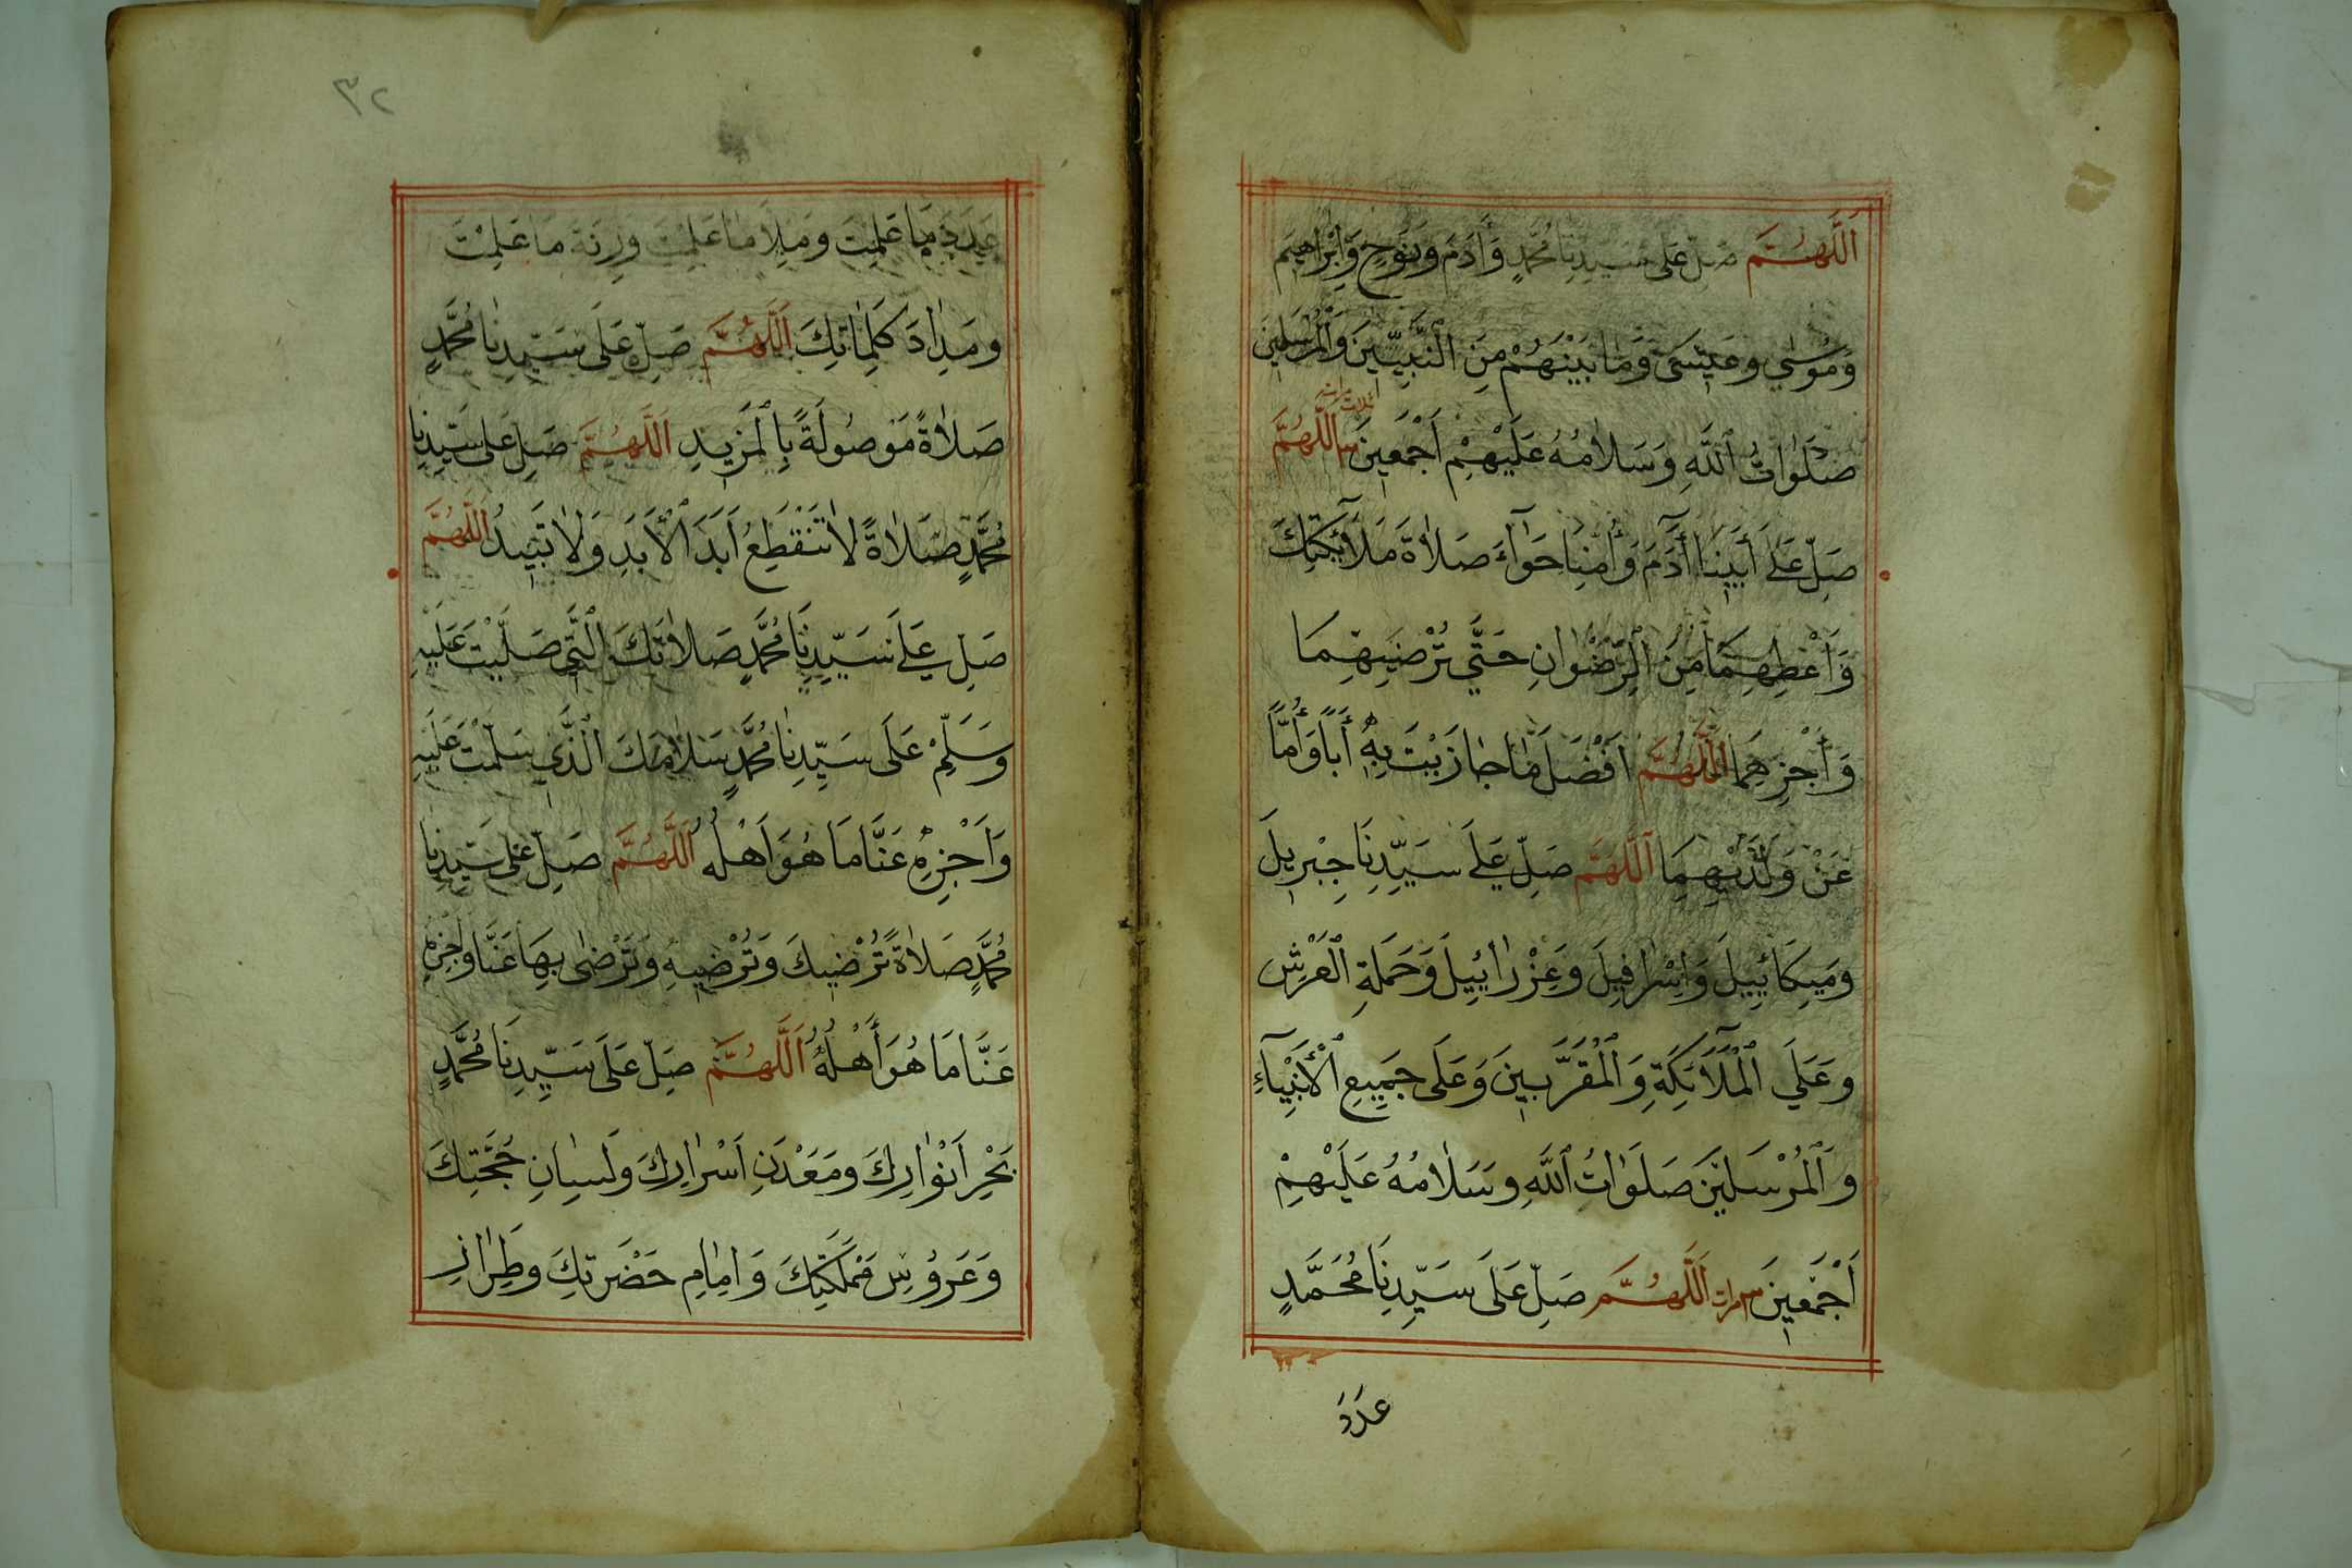 اَللَّهُمَّ صَلِّ عَلَى سَيِّدِنَا مُحَمَّدٍ وَآدَمَ وَنُوحٍ وَإِبْرَاهِيمَ
وَمُوسٰى وَعِيسٰى وَمَا بَيْنَهُمْ مِنَ النَّبِيِّينَ وَالْمُرْسَلِينَ
صَلَوَاتُ اللّٰهِ وَسَلَامُهُ عَلَيْهِمْ أَجْمَعِينَ اَللَّهُمَّ
صَلِّ عَلَى أَبِينَا آدَمَ وَأُمِّنَا حَوَّآءَ صَلَاةَ مَلَآئِكَتِكَ
وَأَعْطِهِمَا مِنَ الرِّضْوَانِ حَتَّى تُرْضِيَهُمَا
وَأَجْزِهِمَا اَللَّهُمَّ أَفْضَلَ مَا جَازَيْتَ بِهِ أَبًا وَأُمًّا
عَنْ وَلَدَيْهِمَا اَللَّهُمَّ صَلِّ عَلَى سَيِّدِنَا جِبْرِيلَ
وَمِيكَائِيلَ وَإِسْرَافِيلَ وَعِزْرَائِيلَ وَحَمَلَةِ الْعَرْشِ
وَعَلَى الْمَلَآئِكَةِ وَالْمُقَرَّبِينَ وَعَلَى جَمِيعِ الْأَنْبِيَآءِ
وَالْمُرْسَلِينَ صَلَوَاتُ اللّٰهِ وَسَلَامُهُ عَلَيْهِمْ
أَجْمَعِينَ اَللَّهُمَّ صَلِّ عَلَى سَيِّدِنَا مُحَمَّدٍ
عَدَدَ
٣٢
عَدَدَ مَا عَلِمْتَ وَمِلْأَ مَا عَلِمْتَ وَزِنَةَ مَا عَلِمْتَ
وَمِدَادَ كَلِمَاتِكَ اَللَّهُمَّ صَلِّ عَلَى سَيِّدِنَا مُحَمَّدٍ
صَلَاةً مَوْصُولَةً بِالْمَزِيدِ اَللَّهُمَّ صَلِّ عَلَى سَيِّدِنَا
مُحَمَّدٍ صَلَاةً لَا تَنْقَطِعُ أَبَدَ الْأَبَدِ وَلَا تَبِيدُ اَللَّهُمَّ
صَلِّ عَلَى سَيِّدِنَا مُحَمَّدٍ صَلَاتَكَ الَّتِي صَلَّيْتَ عَلَيْهِ
وَسَلِّمْ عَلَى سَيِّدِنَا مُحَمَّدٍ سَلَامَكَ الَّذِي سَلَّمْتَ عَلَيْهِ
وَأَجْزِهِ عَنَّا مَا هُوَ أَهْلُهُ اَللَّهُمَّ صَلِّ عَلَى سَيِّدِنَا
مُحَمَّدٍ صَلَاةً تُرْضِيكَ وَتُرْضِيهِ وَتَرْضٰى بِهَا عَنَّا وَاجْزِهِ
عَنَّا مَا هُوَ أَهْلُهُ اَللَّهُمَّ صَلِّ عَلَى سَيِّدِنَا مُحَمَّدٍ
بَحْرِ أَنْوَارِكَ وَمَعْدَنِ أَسْرَارِكَ وَلِسَانِ حُجَّتِكَ
وَعَرُوسِ مَمْلَكَتِكَ وَإِمَامِ حَضْرَتِكَ وَطِرَازِ